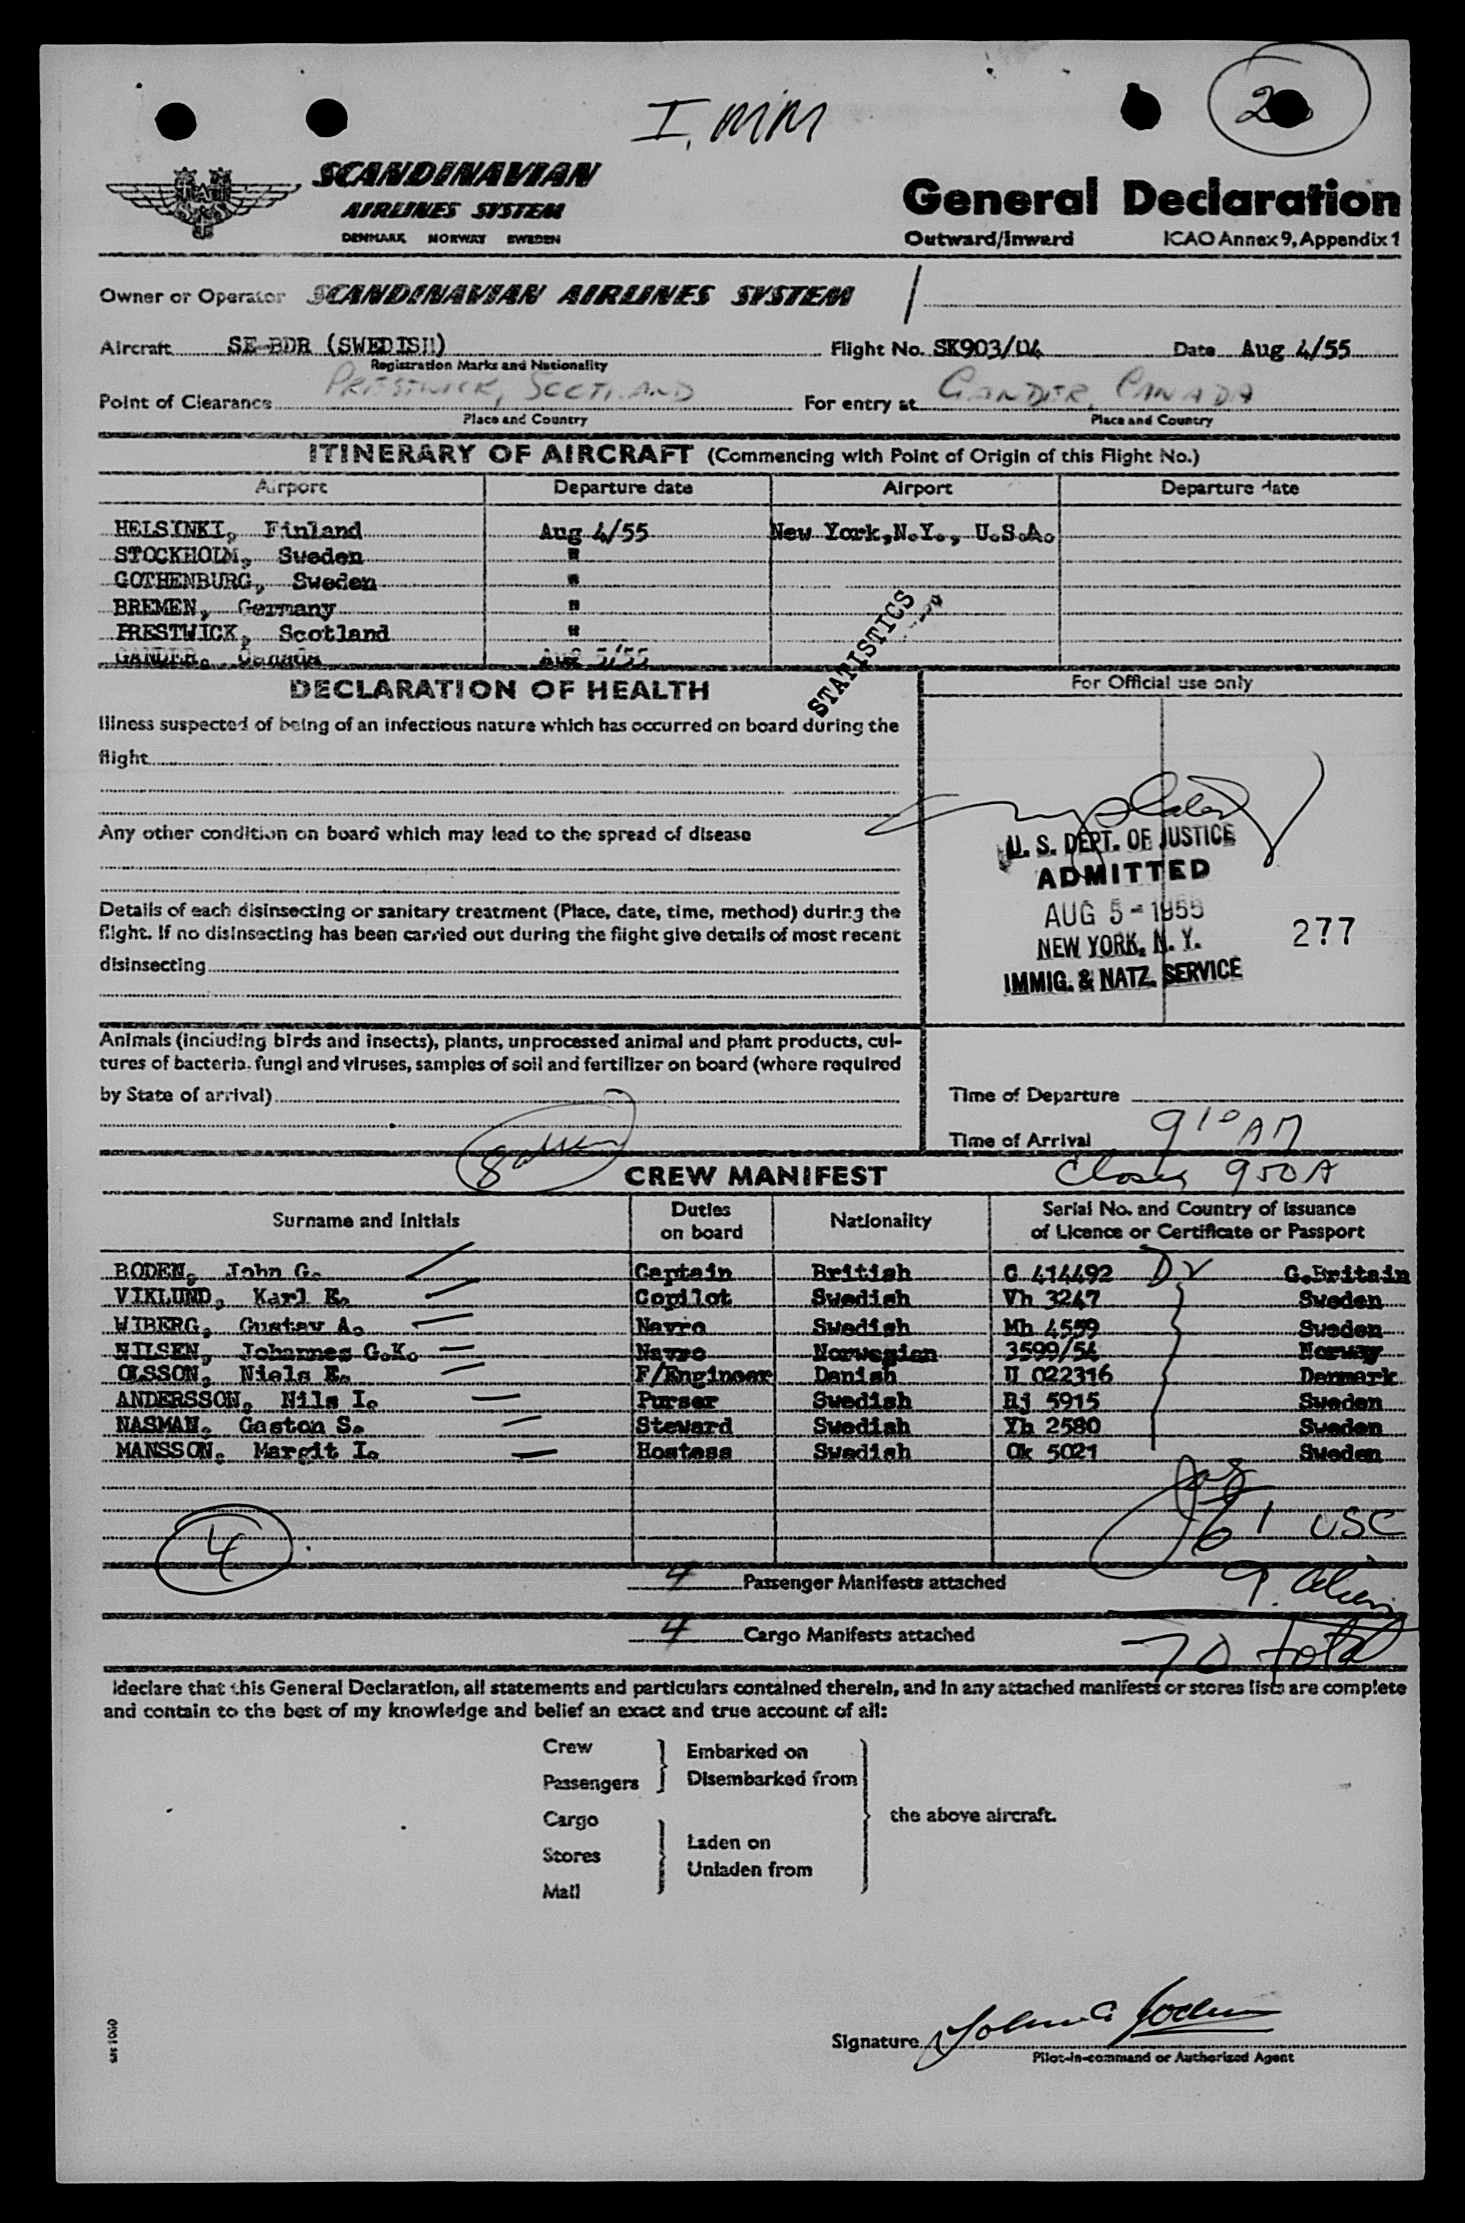 I. MM
2
SCANDINAVIAN
AIRLINES SYSTEM
DENMARK NORWAY SWEDEN
General Declaration
Outward/Inward ICAO Annex 9, Appendix 1
Owner or Operator SCANDINAVIAN AIRLINES SYSTEM /
Aircraft SE-BDR (SWEDISH) Flight No. SK903/04 Date Aug 4/55
Registration Marks and Nationality
Point of Clearance PRESTWICK, SCOTLAND For entry at GANDER, CANADA
Place and Country Place and Country
ITINERARY OF AIRCRAFT (Commencing with Point of Origin of this Flight No.)
Airport Departure date Airport Departure date
HELSINKI, Finland Aug 4/55 New York, N.Y., U.S.A.
STOCKHOLM, Sweden "
GOTHENBURG, Sweden "
BREMEN, Germany "
PRESTWICK, Scotland "
GANDER, Canada Aug 5/55
STATISTICS
DECLARATION OF HEALTH For Official use only
Illness suspected of being of an infectious nature which has occurred on board during the
flight
Any other condition on board which may lead to the spread of disease
U. S. DEPT. OF JUSTICE
ADMITTED
AUG 5 - 1955
NEW YORK, N. Y.
IMMIG. & NATZ. SERVICE
277
Details of each disinsecting or sanitary treatment (Place, date, time, method) during the
flight. If no disinsecting has been carried out during the flight give details of most recent
disinsecting
Animals (including birds and insects), plants, unprocessed animal and plant products, cul-
tures of bacteria, fungi and viruses, samples of soil and fertilizer on board (where required
by State of arrival)
Time of Departure
Time of Arrival 9 10 AM
CREW MANIFEST Closed 950A
Surname and Initials Duties on board Nationality Serial No. and Country of Issuance of Licence or Certificate or Passport
BODEN, John G. Captain British C 414492 G.Britain
VIKLUND, Karl E. Copilot Swedish Vh 3247 Sweden
WIBERG, Gustav A. Navro Swedish Mh 4559 Sweden
NILSEN, Johannes G.K. Navro Norwegian 3599/54 Norway
OLSSON, Niels E. F/Engineer Danish U 022316 Denmark
ANDERSSON, Nils I. Purser Swedish Rj 5915 Sweden
NASMAN, Gaston S. Steward Swedish Yh 2580 Sweden
MANSSON, Margit I. Hostess Swedish Ok 5021 Sweden
4
61 USC
4 Passenger Manifests attached 9. Aliens
4 Cargo Manifests attached 70 total
I declare that this General Declaration, all statements and particulars contained therein, and in any attached manifests or stores lists are complete
and contain to the best of my knowledge and belief an exact and true account of all:
Crew Embarked on
Passengers Disembarked from
Cargo the above aircraft.
Laden on
Stores
Unladen from
Mail
Signature John G Boden
Pilot-in-command or Authorized Agent